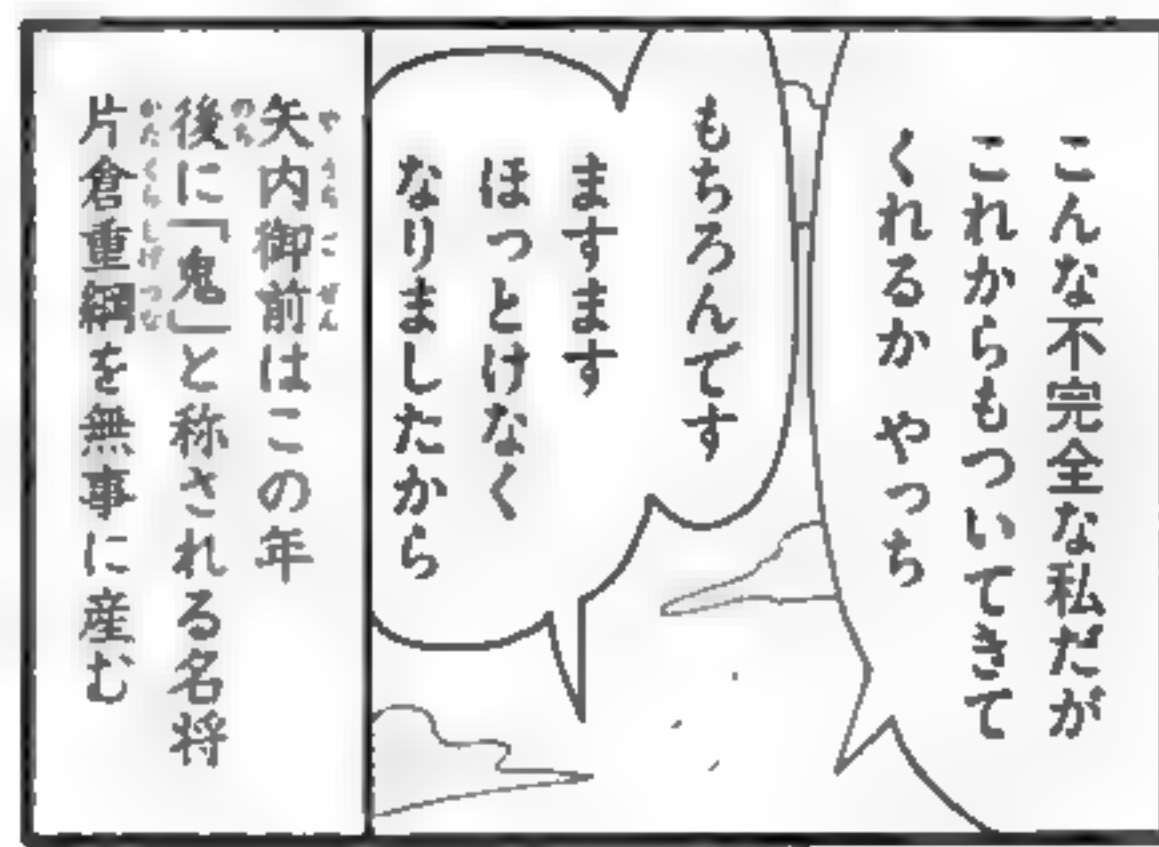 こんな不完全な私だが
これからもついてきて
くれるか やっち
もちろんです
ますます
ほっとけなく
なりましたから
矢内御前はこの年
やうちごぜん
後に「鬼」と称される名将
のち
片倉重綱を無事に産む
かたくらしげつな